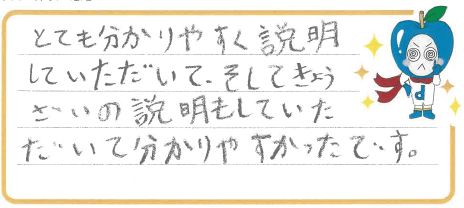 とても分かりやすく説明
していただいて、そしてきょう
ざいの説明もしていた
だいて分かりやすかったです。
d